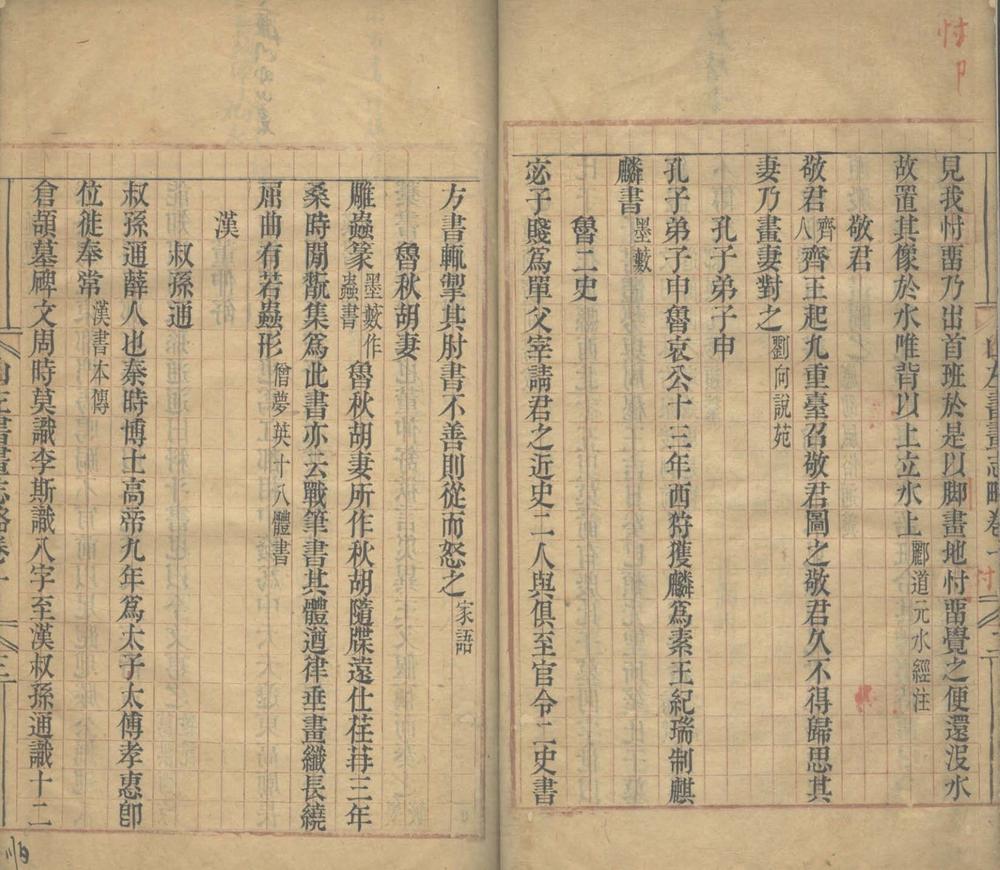 見我忖𠽃乃出首班於是以脚畫地忖𠽃覺之便還沒水
故置其像於水唯背以上立水上酈道元水經注
敬君
敬君齊人齊王起九重臺召敬君圖之敬君久不得歸思其
妻乃畫妻對之劉向說苑
孔子弟子申
孔子弟子申魯哀公十三年西狩獲麟爲素王紀瑞制麒
麟書墨藪
魯二史
宓子賤爲單父宰請君之近史二人與俱至官令二史書
方書輒掣其肘書不善則從而怒之家語
魯秋胡妻
雕蟲篆墨藪作蟲書魯秋胡妻所作秋胡隨牒遠仕荏苒三年
桑時閒翫集爲此書亦云戰筆書其體遒律垂畫纖長繞
屈曲有若蟲形僧夢英十八體書
漢
叔孫通
叔孫通薛人也秦時博士高帝九年爲太子太傅孝惠卽
位徙奉常漢書本傳
倉頡墓碑文周時莫識李斯識八字至漢叔孫通識十二